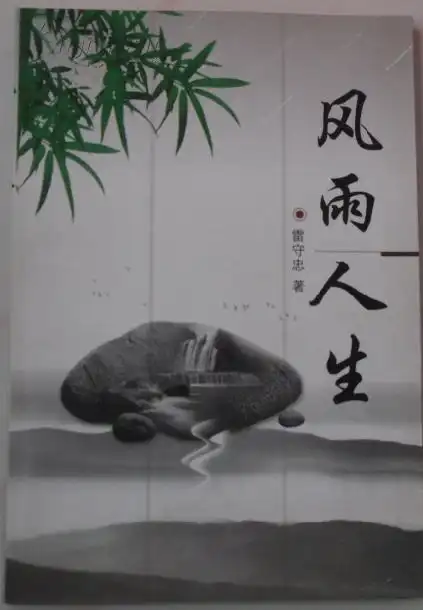 风雨人生
雷守忠 著